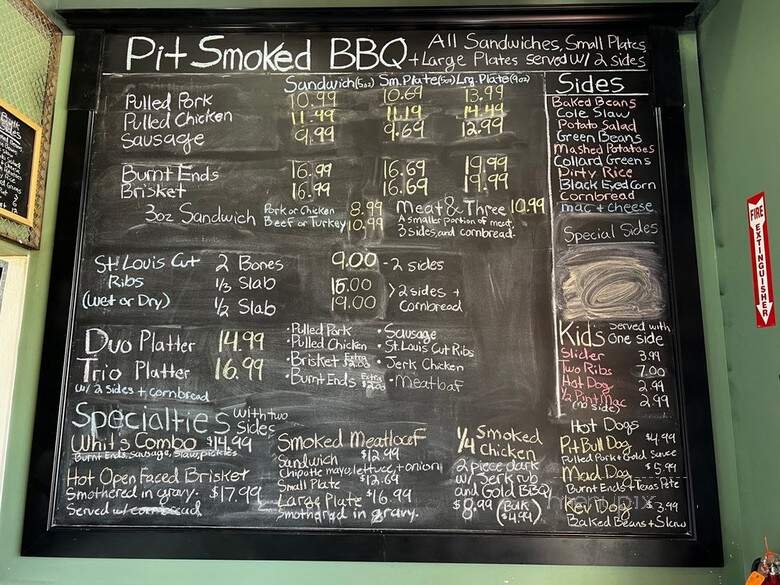 Pit Smoked BBQ
All Sandwiches, Small Plates,
+ Large Plates served w/ 2 sides
Sandwich (5oz) Sm. Plate (5oz) Lrg. Plate (9oz)
Pulled Pork 10.99 10.69 13.99
Pulled Chicken 11.99 11.19 14.49
Sausage 9.99 9.69 12.99
Burnt Ends 16.99 16.69 19.99
Brisket 16.99 16.69 19.99
3oz Sandwich Pork or Chicken 8.99
Beef or Turkey 10.99
Meat & Three 10.99
A smaller portion of meat,
3 sides, and cornbread.
St. Louis Cut 2 Bones 9.00 - 2 sides
Ribs 1/3 Slab 15.00 > 2 sides +
(Wet or Dry) 1/2 Slab 19.00 cornbread
Duo Platter 14.99
Trio Platter 16.99
w/ 2 sides + cornbread
• Pulled Pork • Sausage
• Pulled Chicken • St. Louis Cut Ribs
• Brisket Extra • Jerk Chicken
• Burnt Ends Extra • Meatloaf
Specialties with two
sides
Whit's Combo $14.99
Burnt Ends, Sausage, Slaw, pickles
Hot Open Faced Brisket
Smothered in gravy. $17.99
Served w/ cornbread
Smoked Meatloaf
Sandwich $12.99
Chipotle mayo, lettuce, + onion
Small Plate $12.69
Large Plate $16.99
Smothered in gravy.
1/4 Smoked
Chicken
2 piece dark
w/ Jerk rub
and Gold BBQ
$8.99 (Bulk
$4.99)
Sides
Baked Beans
Cole Slaw
Potato Salad
Green Beans
Mashed Potatoes
Collard Greens
Dirty Rice
Black Eyed Corn
Cornbread
mac + cheese
Special Sides
Kid's Served with
One side
Slider 3.99
Two Ribs 7.00
Hot Dog 2.99
1/2 Pint Mac 2.99
(no side)
Hot Dogs
Pit Bull Dog $4.99
Pulled Pork + Gold Sauce
Mad Dog $5.99
Burnt Ends + Texas Pete
Kev Dog $3.99
Baked Beans + Slaw
FIRE EXTINGUISHER